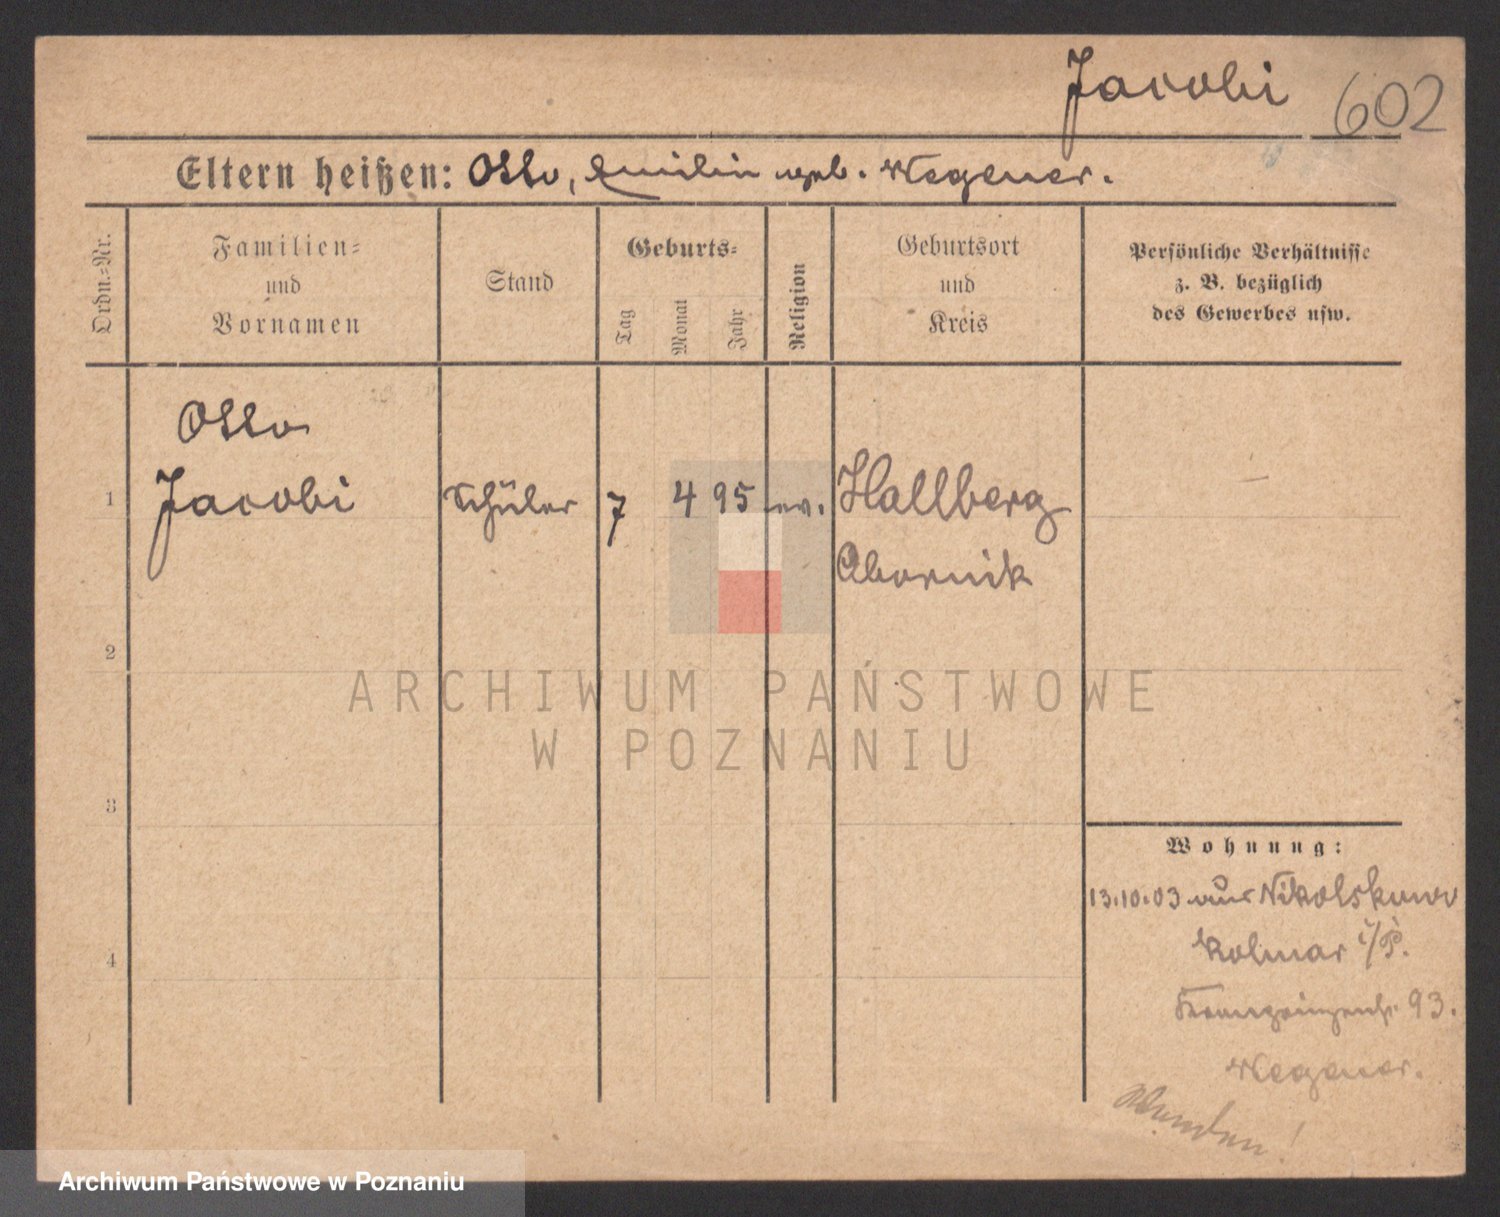 Jacobi 602
Eltern heißen: Otto, Emilie geb. Wegener.
Ordn.-Nr.
Familien-
und
Vornamen
Stand
Geburts-
Tag
Monat
Jahr
Religion
Geburtsort
und
Kreis
Persönliche Verhältnisse
z. B. bezüglich
des Gewerbes usw.
Otto
1 Jacobi Schüler 7 4 95 ev. Hallberg —
Obornik
2
ARCHIWUM PAŃSTWOWE
W POZNANIU
3
Wohnung:
13.10.03 aus Nikolskowo
Kolmar i/P.
4
Kronprinzenstr. 93.
Wegener.
Wenden!
Archiwum Państwowe w Poznaniu